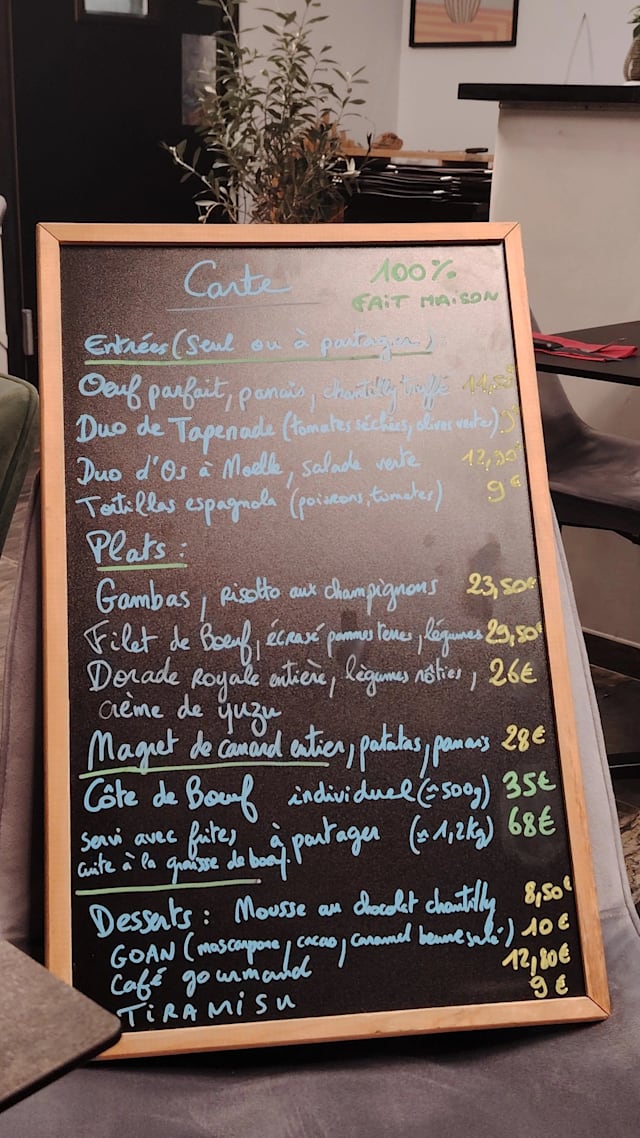 Carte
100%
FAIT MAISON
Entrées (Seul ou à partager) :
Oeuf parfait, panais, chantilly truffé 11,50€
Duo de Tapenade (tomates séchées, olives verte) 9€
Duo d'Os à Moelle, salade verte 12,90€
Tortillas espagnola (poivrons, tomates) 9€
Plats :
Gambas, risotto aux champignons 23,50€
Filet de Boeuf, écrasé pommes terres, légumes 29,50€
Dorade Royale entière, légumes rôties, 26€
crème de yuzu
Magret de canard entier, patatas, panais 28€
Côte de Boeuf individuel (≈ 500g) 35€
servi avec frites, à partager (≈ 1,2Kg) 68€
cuite à la graisse de boeuf.
Desserts : Mousse au chocolat chantilly 8,50€
GOAN (mascarpone, cacao, caramel beurre salé) 10€
Café gourmand 12,80€
TIRAMISU 9€